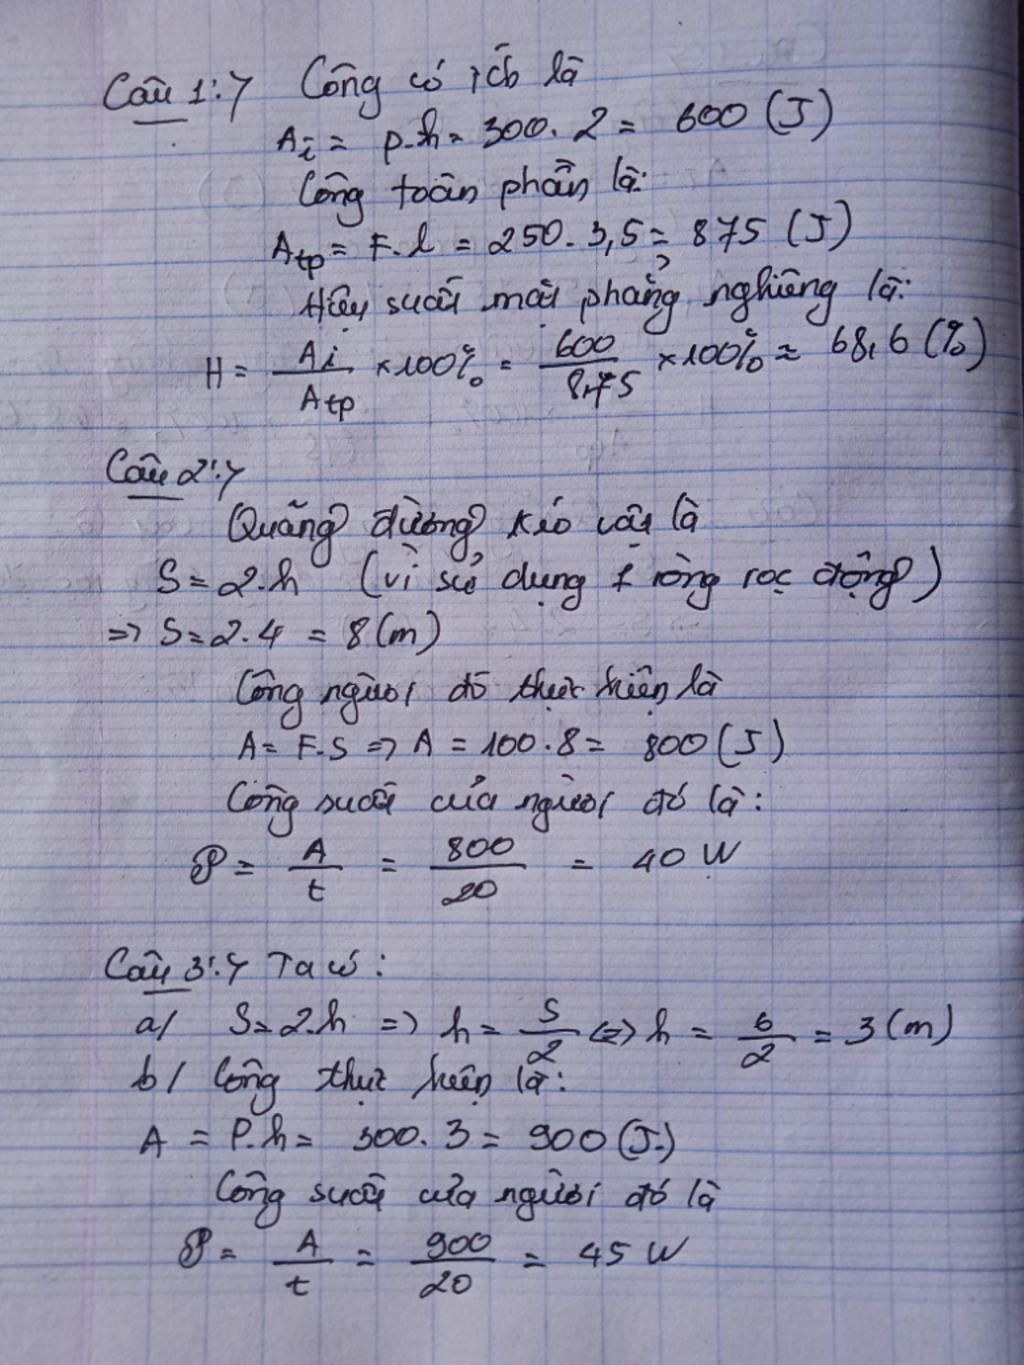 Câu 1: Công có ích là
Ai = p.h = 300. 2 = 600 (J)
Công toàn phần là:
Atp = F.l = 250. 3,5 = 875 (J)
Hiệu suất mặt phẳng nghiêng là:
H = Ai/Atp ×100% = 600/875 ×100% ≈ 68,6 (%)
Câu 2:
Quãng đường kéo vật là
S = 2.h (vì sử dụng 1 ròng rọc động)
=> S = 2.4 = 8 (m)
Công người đó thực hiện là
A = F.S => A = 100.8 = 800 (J)
Công suất của người đó là:
P = A/t = 800/20 = 40 W
Câu 3: Ta có:
a/ S = 2.h => h = S/2 <=> h = 6/2 = 3 (m)
b/ Công thực hiện là:
A = P.h = 300. 3 = 900 (J.)
Công suất của người đó là
P = A/t = 900/20 = 45 W